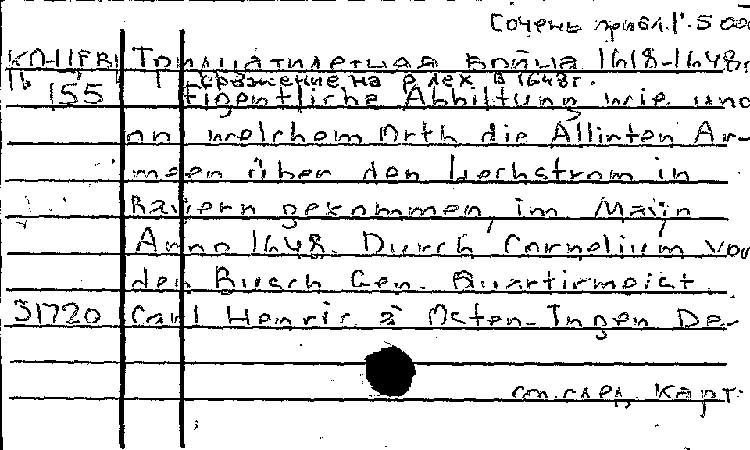 Сочень прибл. 1:5 000
КП-1FBI Тридцатилетная война 1618-1648г
Сражение на р. Лех в 1648г.
155 Eigentliche Abbiltung wie und
an welchem Orth die Allirten Ar-
meen über den Lechstrom in
Bayern gekommen, im Mayn
Anno 1648. Durch Cornelium von
den Busch Gen. Quartirmeist.
31720 Carl Henric à Osten-Ingen De-
см. след. карт.